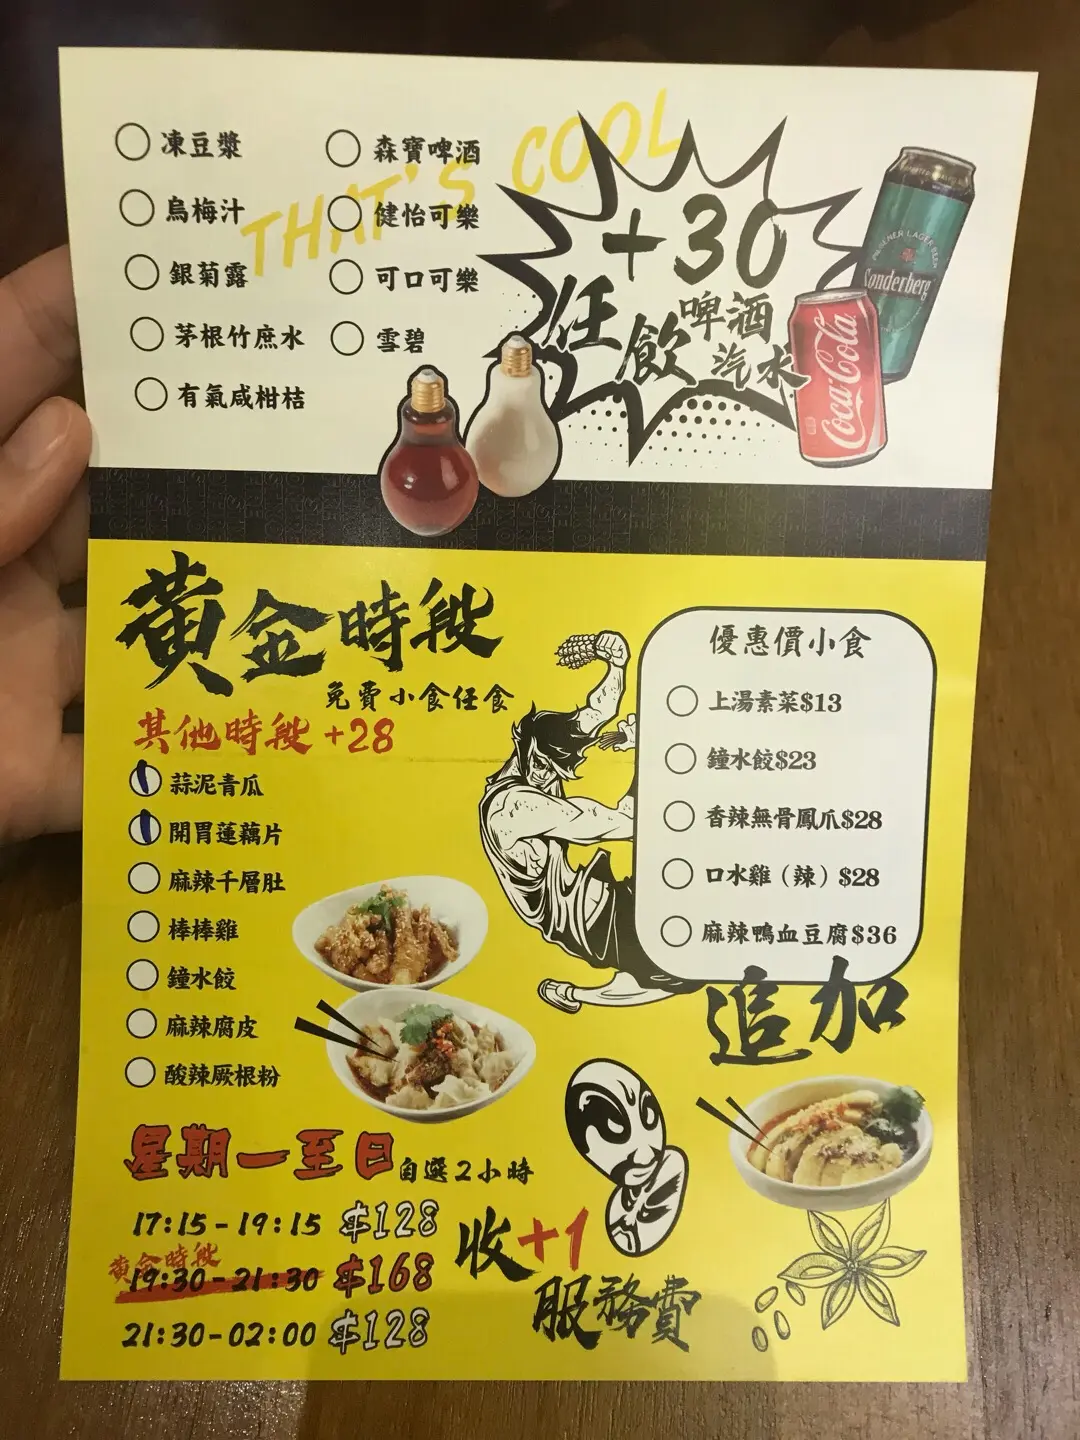 THAT'S COOL
凍豆漿
烏梅汁
銀菊露
茅根竹庶水
有氣咸柑桔
森寶啤酒
健怡可樂
可口可樂
雪碧
+30
任飲啤酒汽水
PILSENER LAGER BEER
Sonderberg
Coca-Cola
黃金時段
免費小食任食
其他時段 +28
蒜泥青瓜
開胃蓮藕片
麻辣千層肚
棒棒雞
鐘水餃
麻辣腐皮
酸辣厥根粉
優惠價小食
上湯素菜$13
鐘水餃$23
香辣無骨鳳爪$28
口水雞（辣）$28
麻辣鴨血豆腐$36
追加
星期一至日自選2小時
17:15-19:15 $128
黃金時段
19:30-21:30 $168
21:30-02:00 $128
收+1
服務費